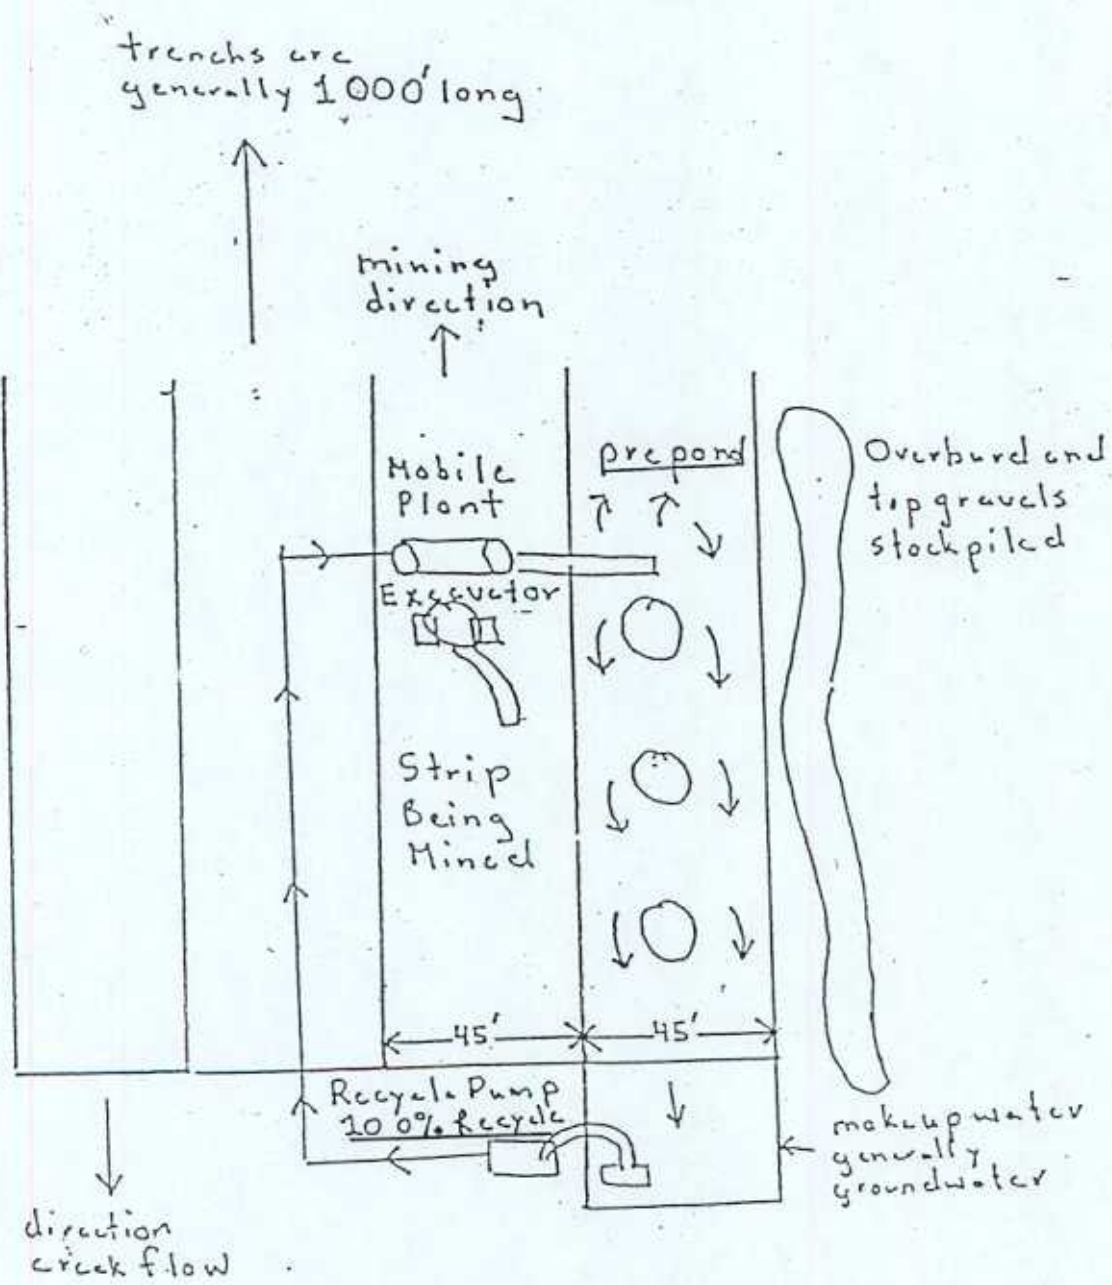 trenchs are
generally 1000' long
mining
direction
Mobile
Plant
prepond
Overburd and
top gravels
stockpiled
Excavator
Strip
Being
Mined
45'
45'
Recycle Pump
100% Recycle
makeup water
generally
groundwater
direction
creek flow